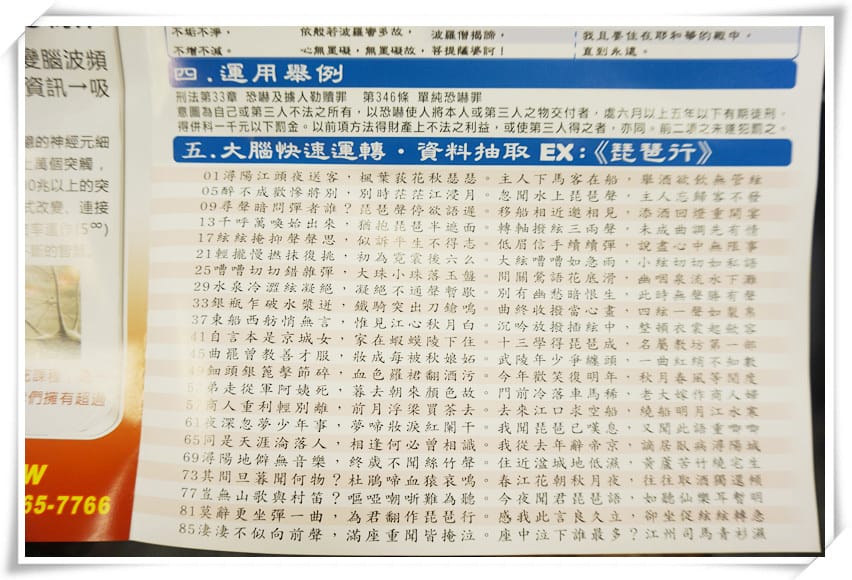 變腦波頻
資訊→吸
的神經元細
萬個突觸，
兆以上的突
式改變、連接
率運作(5∞)
們擁有超過
W
65-7766
不垢不淨， 依般若波羅蜜多故， 波羅僧揭諦， 我且要住在耶和華的殿中，
不增不減。 心無罣礙，無罣礙故， 菩提薩婆訶！ 直到永遠。
四．運用舉例
刑法第33章 恐嚇及擄人勒贖罪 第346條 單純恐嚇罪
意圖為自己或第三人不法之所有，以恐嚇使人將本人或第三人之物交付者，處六月以上五年以下有期徒刑，
得併科一千元以下罰金。以前項方法得財產上不法之利益，或使第三人得之者，亦同。前二項之未遂犯罰之。
五．大腦快速運轉‧資料抽取 EX:《琵琶行》
01潯陽江頭夜送客，楓葉荻花秋瑟瑟。主人下馬客在船，舉酒欲飲無管絃
05醉不成歡慘將別，別時茫茫江浸月。忽聞水上琵琶聲，主人忘歸客不發
09尋聲暗問彈者誰？琵琶聲停欲語遲。移船相近邀相見，添酒回燈重開宴
13千呼萬喚始出來，猶抱琵琶半遮面。轉軸撥絃三兩聲，未成曲調先有情
17絃絃掩抑聲聲思，似訴平生不得志。低眉信手續續彈，說盡心中無限事
21輕攏慢撚抹復挑，初為霓裳後六么。大絃嘈嘈如急雨，小絃切切如私語
25嘈嘈切切錯雜彈，大珠小珠落玉盤。間關鶯語花底滑，幽咽泉流水下灘
29水泉冷澀絃凝絕，凝絕不通聲暫歇。別有幽愁暗恨生，此時無聲勝有聲
33銀瓶乍破水漿迸，鐵騎突出刀鎗鳴。曲終收撥當心畫，四絃一聲如裂帛
37東船西舫悄無言，惟見江心秋月白。沉吟放撥插絃中，整頓衣裳起斂容
41自言本是京城女，家在蝦蟆陵下住。十三學得琵琶成，名屬教坊第一部
45曲罷曾教善才服，妝成每被秋娘妬。武陵年少爭纏頭，一曲紅綃不知數
49鈿頭銀篦擊節碎，血色羅裙翻酒污。今年歡笑復明年，秋月春風等閒度
53弟走從軍阿姨死，暮去朝來顏色故。門前冷落車馬稀，老大嫁作商人婦
57商人重利輕別離，前月浮梁買茶去。去來江口求空船，繞船明月江水寒
61夜深忽夢少年事，夢啼妝淚紅闌干。我聞琵琶已嘆息，又聞此語重唧唧
65同是天涯淪落人，相逢何必曾相識。我從去年辭帝京，謫居臥病潯陽城
69潯陽地僻無音樂，終歲不聞絲竹聲。住近湓城地低濕，黃蘆苦竹繞宅生
73其間旦暮聞何物？杜鵑啼血猿哀鳴。春江花朝秋月夜，往往取酒獨還傾
77豈無山歌與村笛？嘔啞嘲哳難為聽。今夜聞君琵琶語，如聽仙樂耳暫明
81莫辭更坐彈一曲，為君翻作琵琶行。感我此言良久立，卻坐促絃絃轉急
85淒淒不似向前聲，滿座重聞皆掩泣。座中泣下誰最多？江州司馬青衫濕